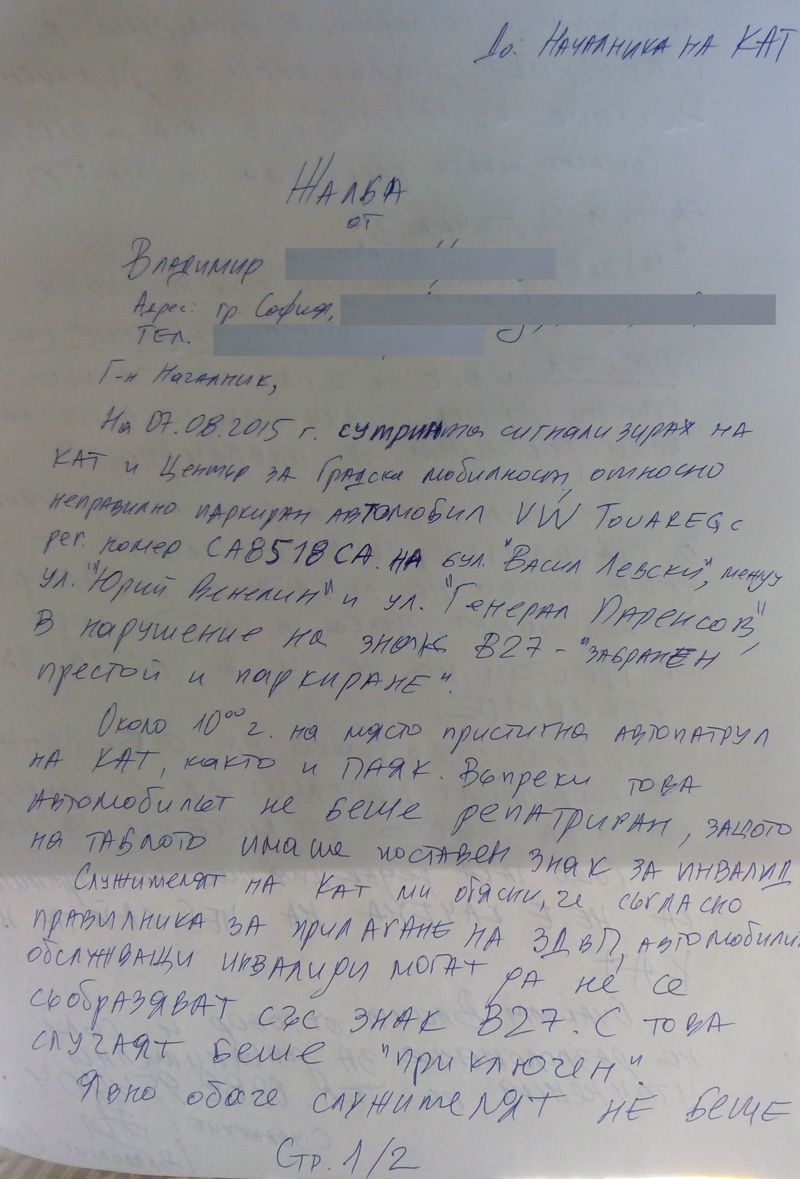 До: Началника на КАТ
Жалба
от
Владимир
Адрес: гр. София,
Тел.
Г-н Началник,
На 07.08.2015 г. сутринта сигнализирах на
КАТ и Център за Градска мобилност, относно
неправилно паркиран автомобил VW TOUAREG с
рег. номер СА8518СА на бул. "Васил Левски", между
ул. "Юрий Венелин" и ул. "Генерал Паренсов",
в нарушение на знак В27 - "забранен
престой и паркиране".
Около 10⁰⁰ г. на място пристигна автопатрул
на КАТ, както и ПАЯК. Въпреки това
автомобилът не беше репатриран, защото
на таблото имаше поставен знак за инвалид.
Служителят на КАТ ми обясни, че съгласно
правилника за прилагане на ЗДвП, автомобили
обслужващи инвалиди могат да не се
съобразяват със знак В27. С това
случаят беше "приключен".
Явно обаче служителят не беше
Стр. 1/2